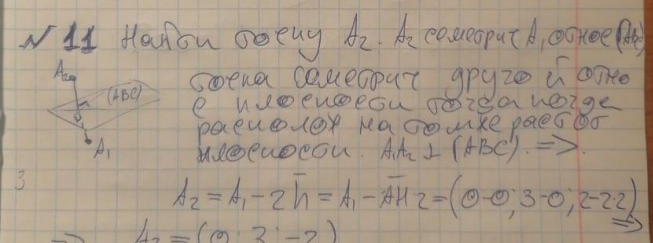 № 11 Найти точку A₂. A₂ семетрич A₁ относ (ABC)
A₂
(ABC)
A₁
точка семетрич другой отно
с плоскости тогда когда
располож на том же расст от
плоскости. A₁A₂ ⊥ (ABC). =>.
3
A₂ = A₁ - 2h̄ = A₁ - A̅H̅ 2 = (0-0; 3-0; 2-2·2)
=>
=> A₂ = (0; 3; -2)